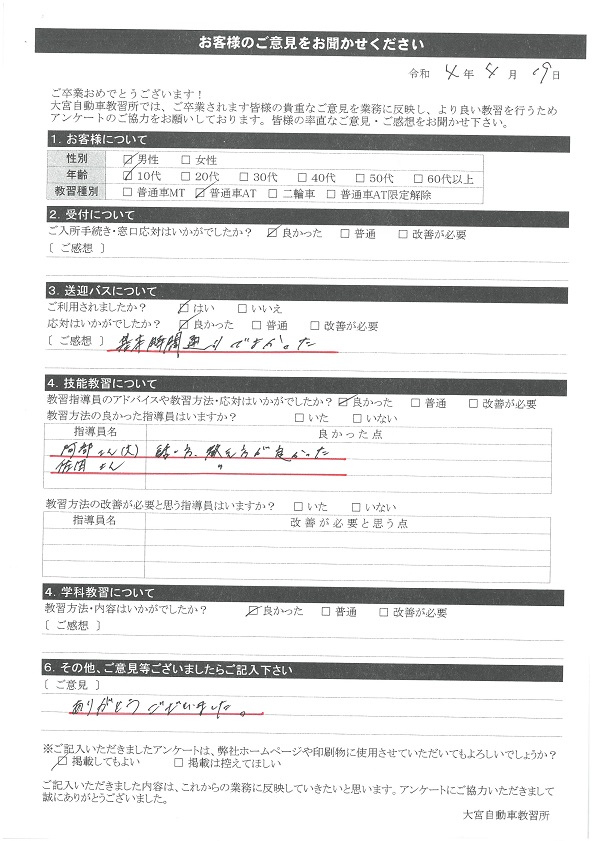 お客様のご意見をお聞かせください
令和 4 年 4 月 19 日
ご卒業おめでとうございます！
大宮自動車教習所では、ご卒業されます皆様の貴重なご意見を業務に反映し、より良い教習を行うため
アンケートのご協力をお願いしております。皆様の率直なご意見・ご感想をお聞かせ下さい。
1. お客様について
性別 ☑男性 □女性
年齢 ☑10代 □20代 □30代 □40代 □50代 □60代以上
教習種別 □普通車MT ☑普通車AT □二輪車 □普通車AT限定解除
2. 受付について
ご入所手続き・窓口応対はいかがでしたか？ ☑良かった □普通 □改善が必要
〔 ご感想 〕
3. 送迎バスについて
ご利用されましたか？ ☑はい □いいえ
応対はいかがでしたか？ ☑良かった □普通 □改善が必要
〔 ご感想 〕 基本時間通りでよかった
4. 技能教習について
教習指導員のアドバイスや教習方法・応対はいかがでしたか？ ☑良かった □普通 □改善が必要
教習方法の良かった指導員はいますか？ □いた □いない
指導員名 良かった点
阿部さん(大) 話し方、教え方が良かった
佐間さん 〃
教習方法の改善が必要と思う指導員はいますか？ □いた □いない
指導員名 改善が必要と思う点
4. 学科教習について
教習方法・内容はいかがでしたか？ ☑良かった □普通 □改善が必要
〔 ご感想 〕
6. その他、ご意見等ございましたらご記入下さい
〔 ご意見 〕
ありがとうございました。
※ご記入いただきましたアンケートは、弊社ホームページや印刷物に使用させていただいてもよろしいでしょうか？
☑掲載してもよい □掲載は控えてほしい
ご記入いただきました内容は、これからの業務に反映していきたいと思います。アンケートにご協力いただきまして
誠にありがとうございました。
大宮自動車教習所